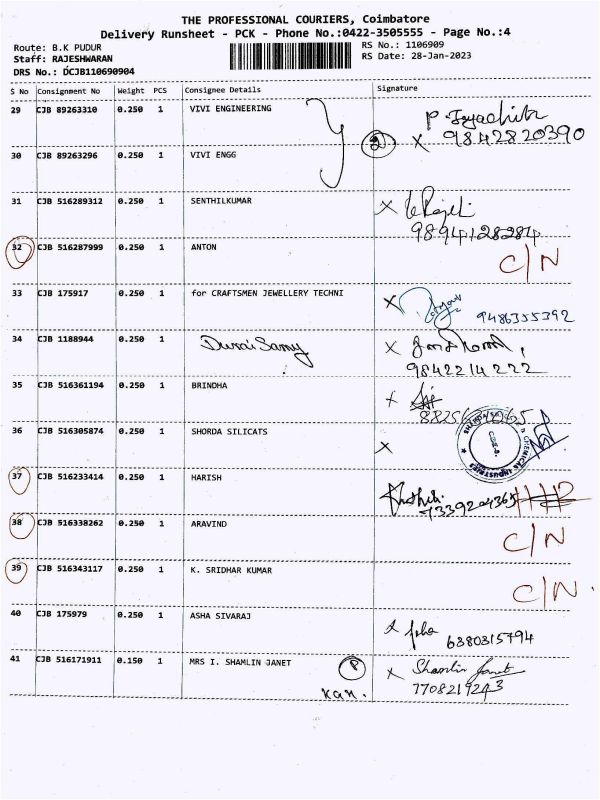 THE PROFESSIONAL COURIERS, Coimbatore
Delivery Runsheet - PCK - Phone No.:0422-3505555 - Page No.:4
Route: B.K PUDUR RS No.: 1106909
Staff: RAJESHWARAN RS Date: 28-Jan-2023
DRS No.: DCJB110690904
S No Consignment No Weight PCS Consignee Details Signature
29 CJB 89263310 0.250 1 VIVI ENGINEERING P
2 X 9842820390
30 CJB 89263296 0.250 1 VIVI ENGG
31 CJB 516289312 0.250 1 SENTHILKUMAR X
9894128284
32 CJB 516287999 0.250 1 ANTON C/N
33 CJB 175917 0.250 1 for CRAFTSMEN JEWELLERY TECHNI X
9486355392
34 CJB 1188944 0.250 1 Durai Samy X
9842214222
35 CJB 516361194 0.250 1 BRINDHA
36 CJB 516305874 0.250 1 SHORDA SILICATS X
CHEMICAL INDUSTRIES
37 CJB 516233414 0.250 1 HARISH
7339204365
38 CJB 516338262 0.250 1 ARAVIND C/N
39 CJB 516343117 0.250 1 K. SRIDHAR KUMAR C/N.
40 CJB 175979 0.250 1 ASHA SIVARAJ
6380315794
41 CJB 516171911 0.150 1 MRS I. SHAMLIN JANET P X Shamlin Janet
Kan. 7708219243